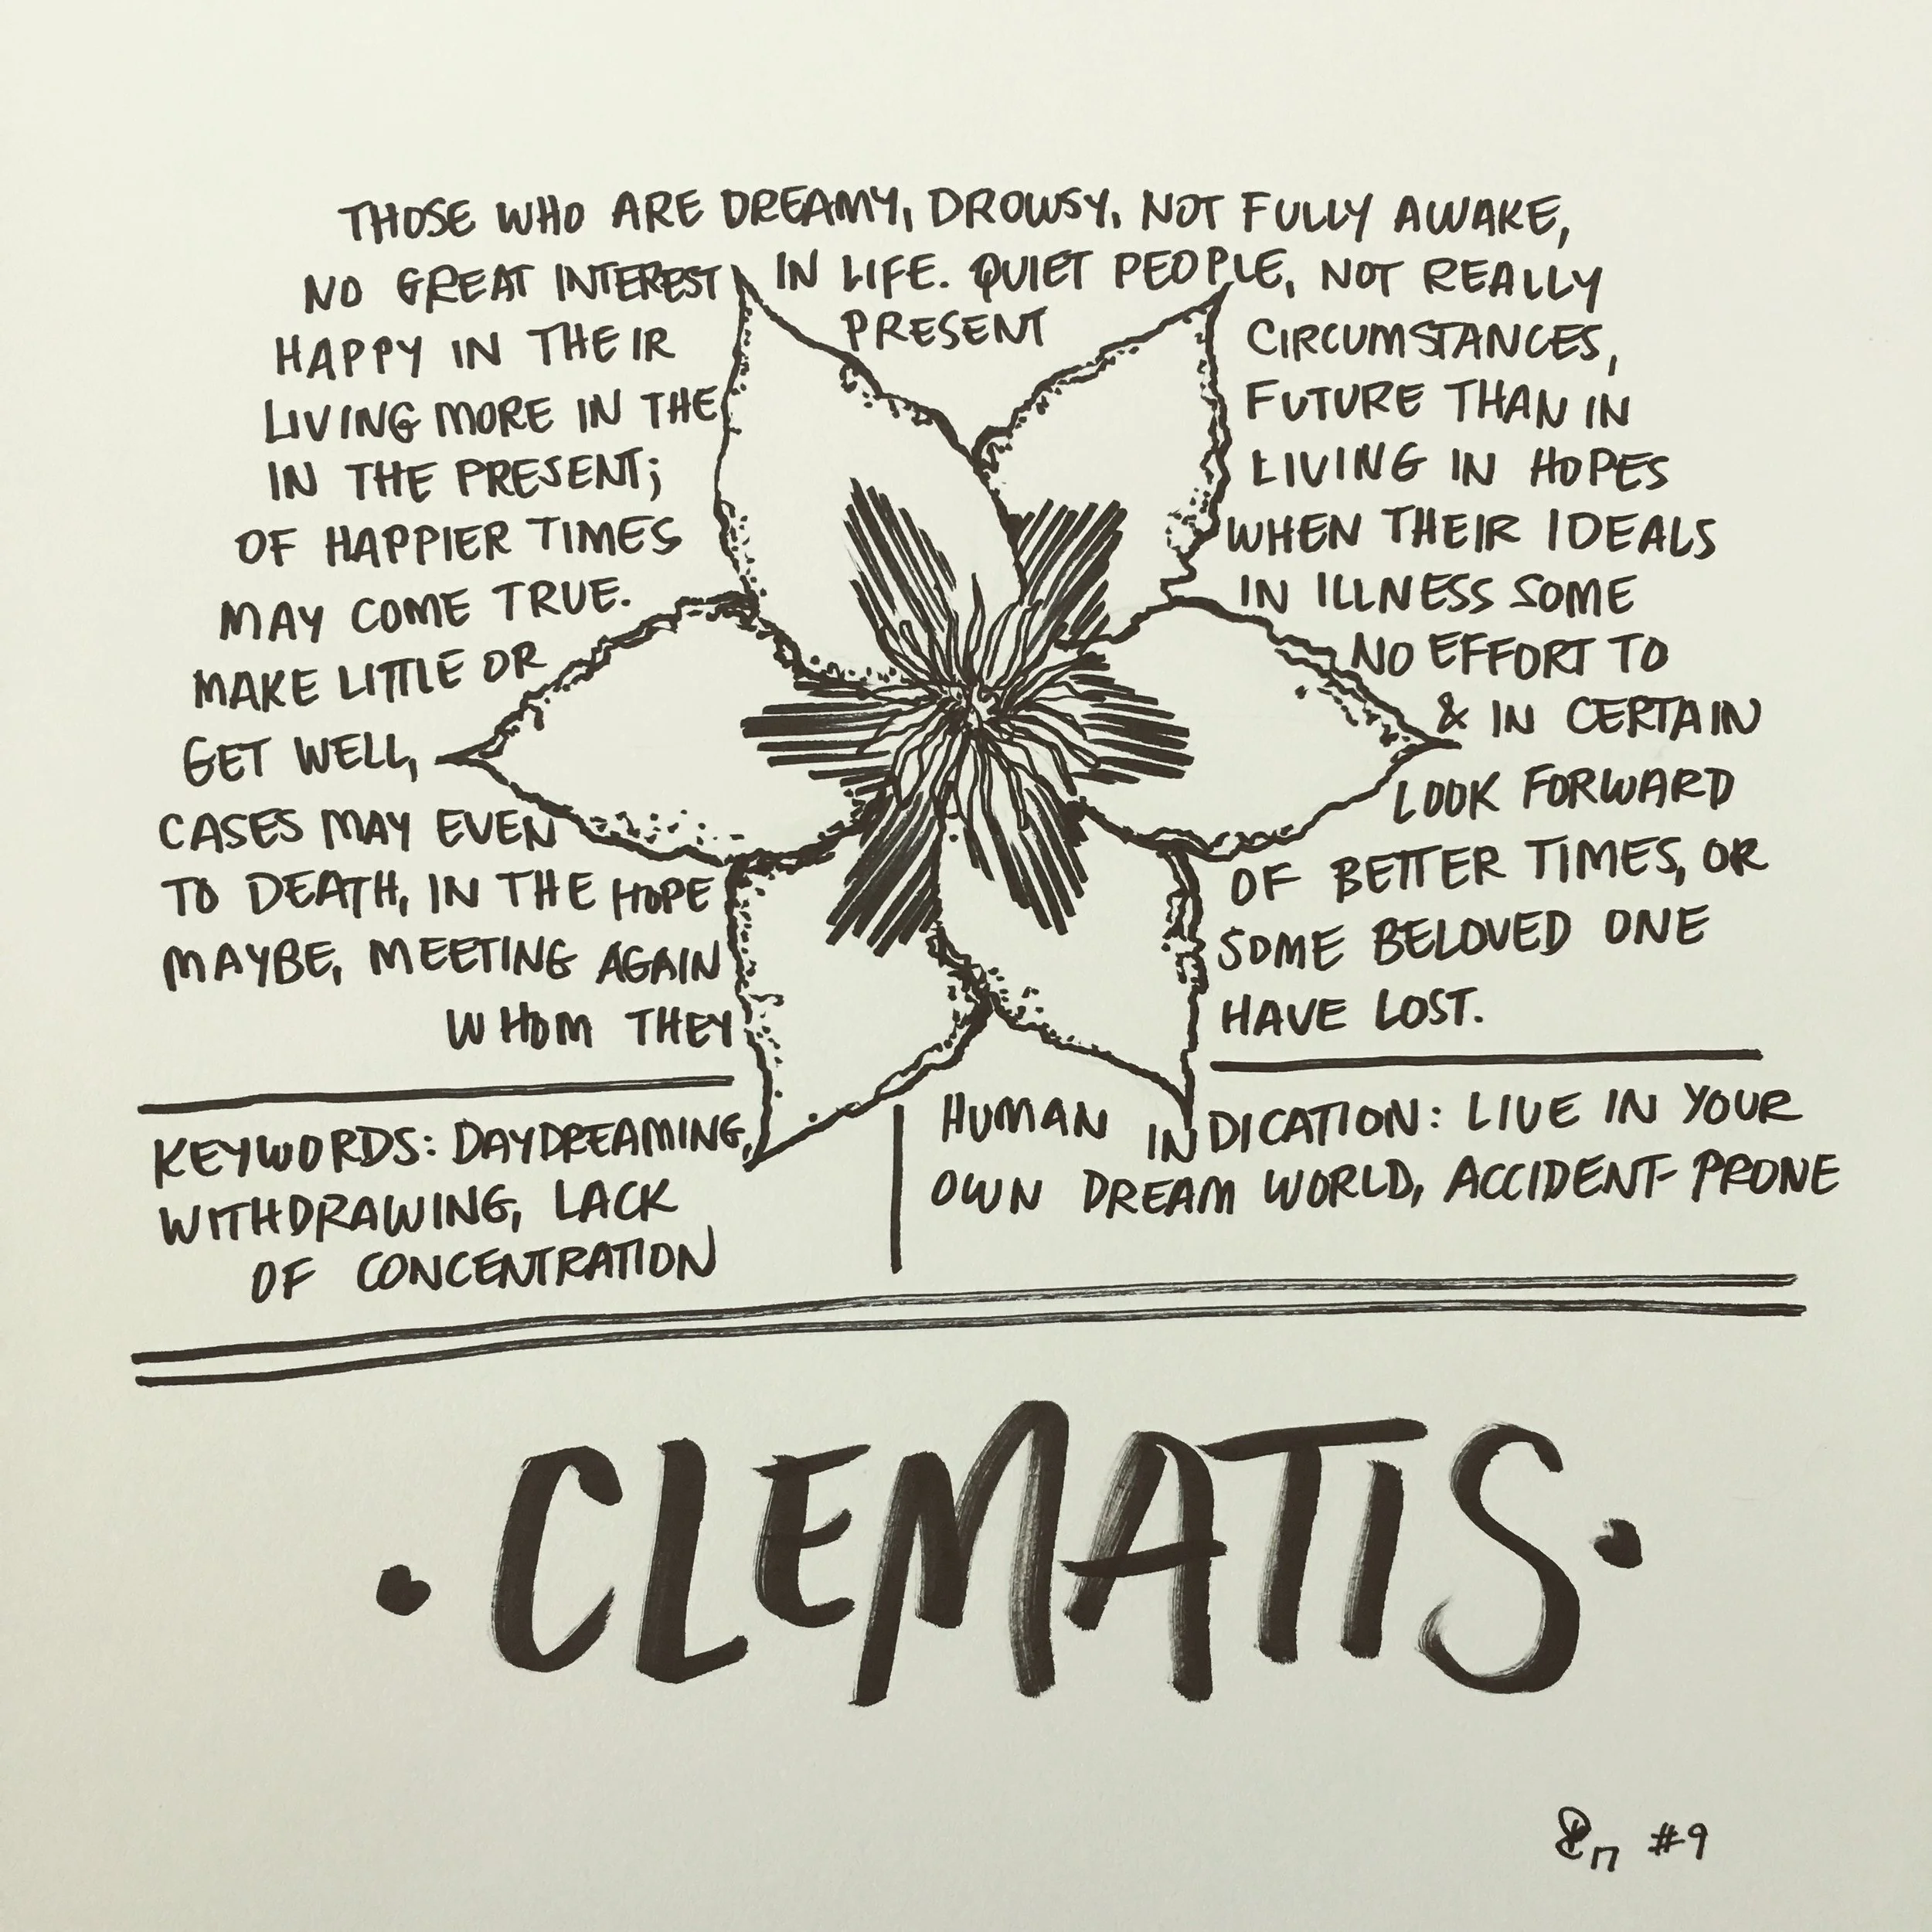 THOSE WHO ARE DREAMY, DROWSY, NOT FULLY AWAKE,
NO GREAT INTEREST IN LIFE. QUIET PEOPLE, NOT REALLY
HAPPY IN THEIR PRESENT CIRCUMSTANCES,
LIVING MORE IN THE FUTURE THAN IN
IN THE PRESENT; LIVING IN HOPES
OF HAPPIER TIMES WHEN THEIR IDEALS
MAY COME TRUE. IN ILLNESS SOME
MAKE LITTLE OR NO EFFORT TO
GET WELL, & IN CERTAIN
CASES MAY EVEN LOOK FORWARD
TO DEATH, IN THE HOPE OF BETTER TIMES, OR
MAYBE, MEETING AGAIN SOME BELOVED ONE
WHOM THEY HAVE LOST.
KEYWORDS: DAYDREAMING,
WITHDRAWING, LACK
OF CONCENTRATION
HUMAN INDICATION: LIVE IN YOUR
OWN DREAM WORLD, ACCIDENT-PRONE
• CLEMATIS •
#9